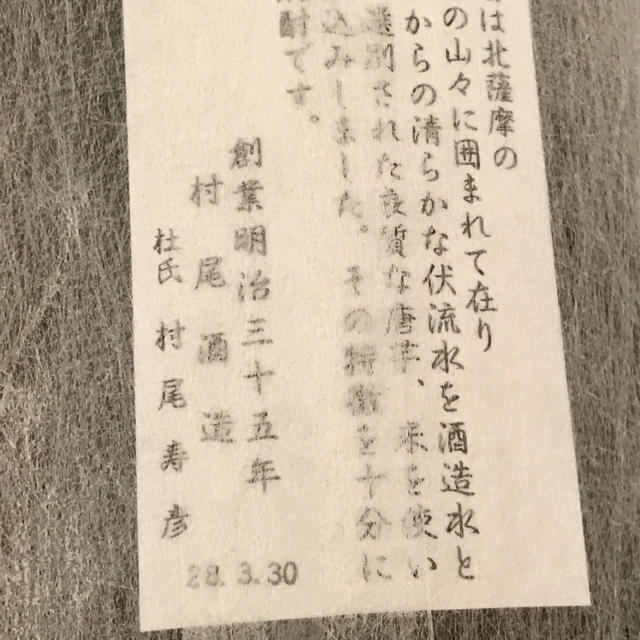 は北薩摩の
の山々に囲まれて在り
からの清らかな伏流水を酒造水と
選別された良質な唐芋、米を使い
込みしました。その特徴を十分に
酎です。
創業明治三十五年
村尾酒造
杜氏 村尾寿彦
28.3.30